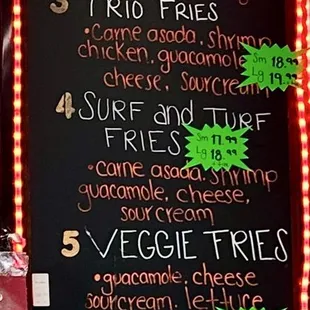 3 TRIO FRIES
•Carne asada, shrimp
chicken, guacamole
cheese, sourcream
Sm 18.99
Lg 19.99
4 SURF and TURF
FRIES
Sm 17.99
Lg 18.99
•carne asada, shrimp
guacamole, cheese,
sourcream
5 VEGGIE FRIES
•guacamole, cheese
sourcream, lettuce